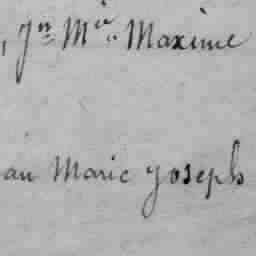 , Jn Mie Maxime
an Marie Joseph